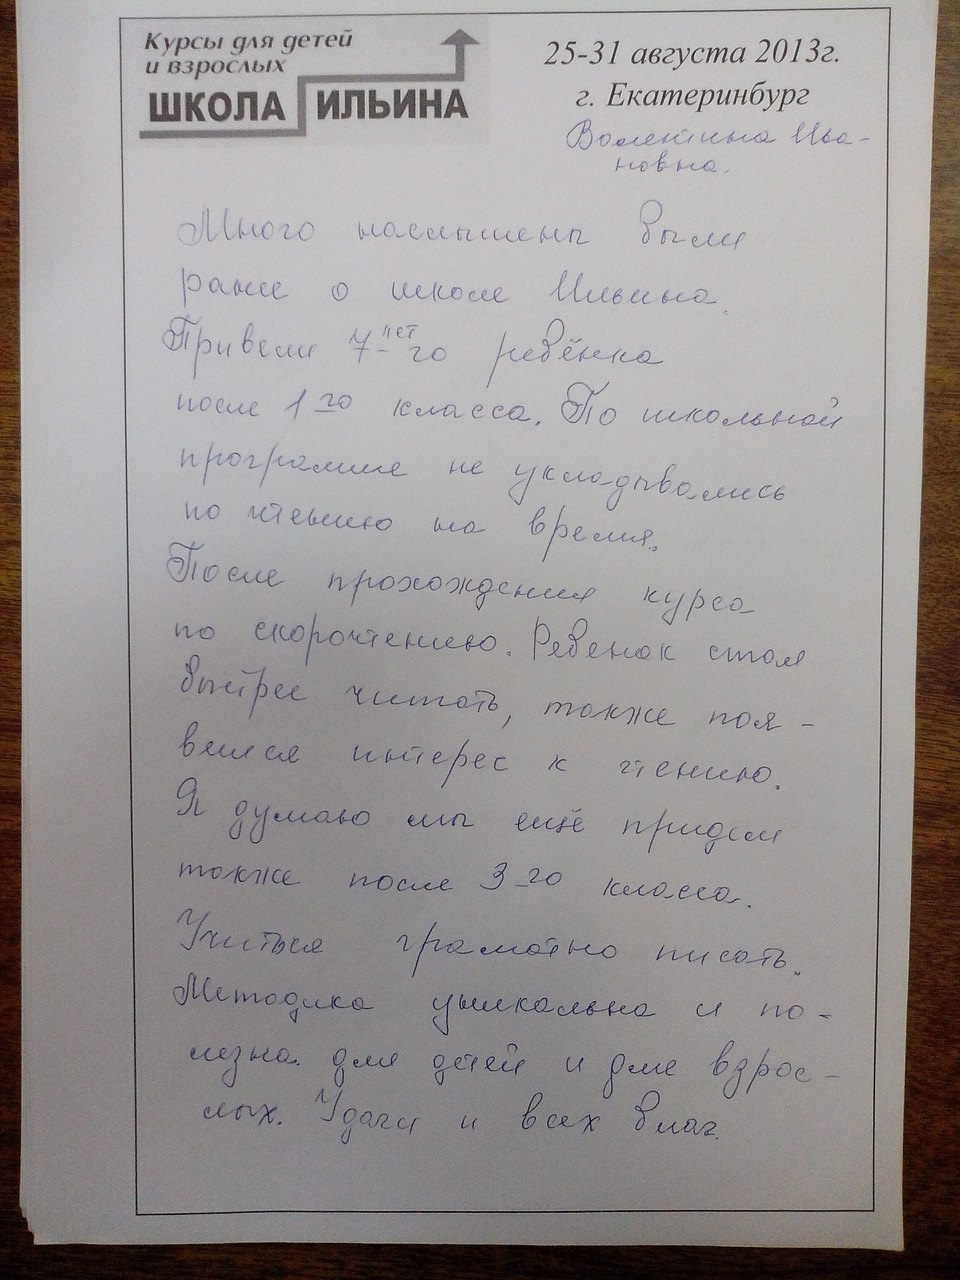 Курсы для детей
и взрослых
ШКОЛА ИЛЬИНА
25-31 августа 2013г.
г. Екатеринбург
Валентина Ива-
новна.
Много наслышены были
ранее о школе Ильина.
Привели 7-лет го ребёнка
после 1го класса. По школьной
программе не укладывались
по чтению на время.
После прохождения курса
по скорочтению. Ребенок стал
быстрее читать, также поя-
вился интерес к чтению.
Я думаю мы ещё придем
также после 3-го класса.
Учиться грамотно писать.
Методика уникальна и по-
лезна для детей и для взрос-
лых. Удачи и всех благ.